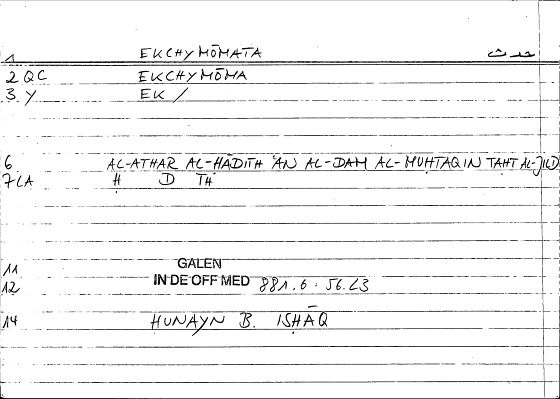 1 EKCHYMŌMATA حدث
2 QC EKCHYMŌMA
3 Y EK /
6 AL-ATHAR AL-ḤĀDITH ʿAN AL-DAM AL-MUḤTAQIN TAḤT AL-JILD
7 LA Ḥ D TH
11 GALEN
12 IN DE OFF MED 881.6 · 56.L3
14 ḤUNAYN B. ISḤĀQ